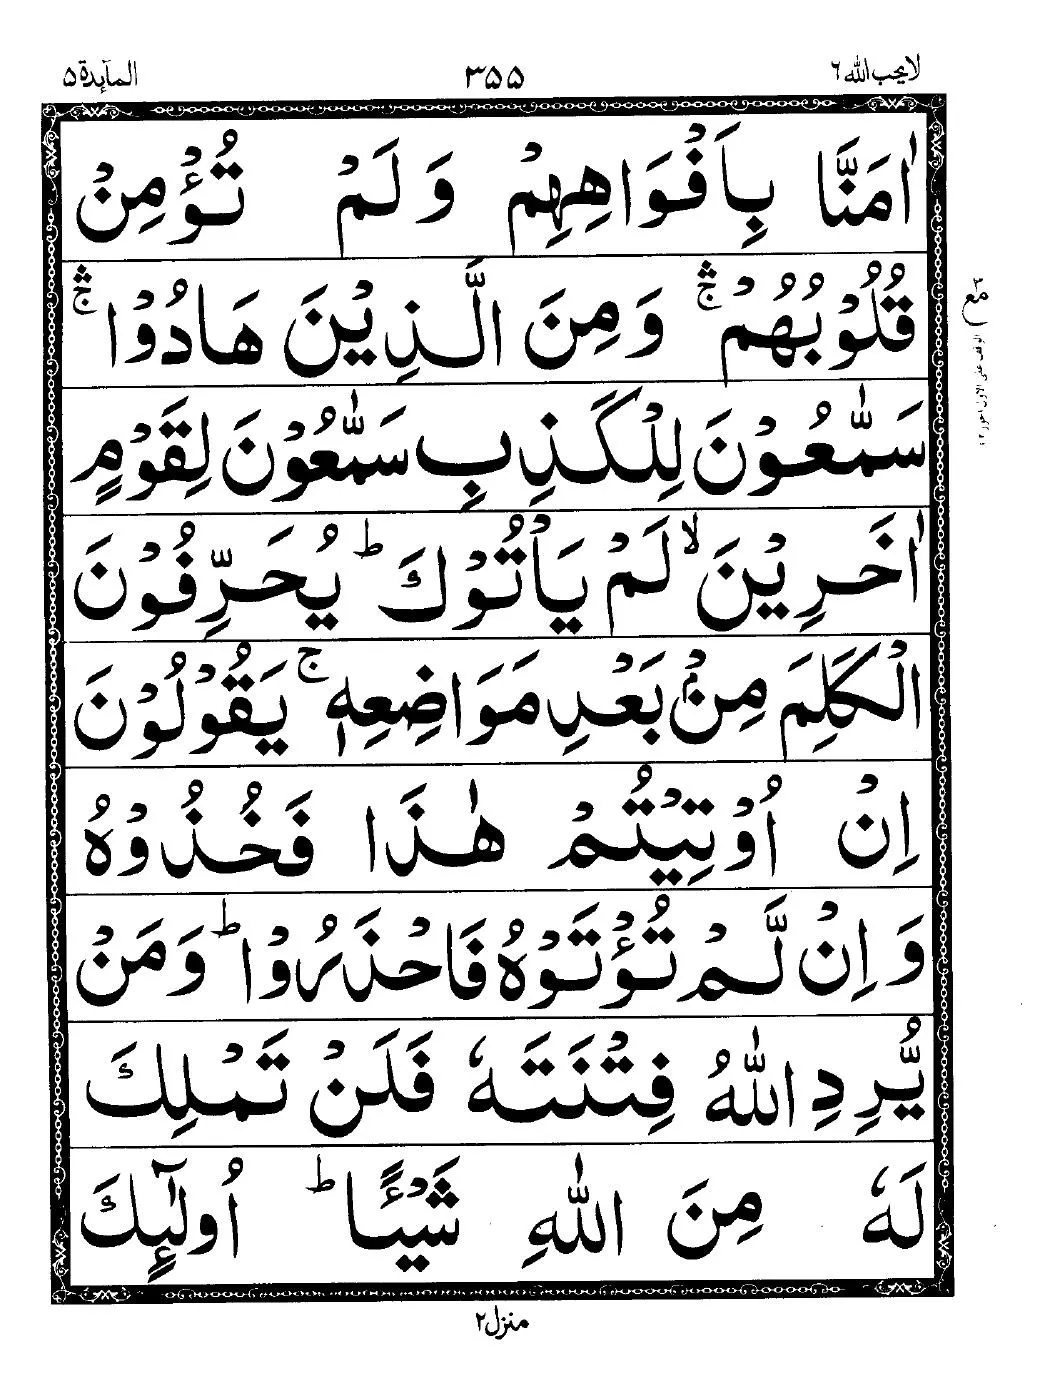 لا يحب الله ٦
٣٥٥
المآىِدة ٥
اٰمَنَّا بِاَفْوَاهِهِمْ وَلَمْ تُؤْمِنْ
قُلُوْبُهُمْ ۛۚ وَمِنَ الَّذِيْنَ هَادُوْا ۛۚ
سَمّٰعُوْنَ لِلْكَذِبِ سَمّٰعُوْنَ لِقَوْمٍ
اٰخَرِيْنَ ۙ لَمْ يَاْتُوْكَ ؕ يُحَرِّفُوْنَ
الْكَلِمَ مِنْۢ بَعْدِ مَوَاضِعِهٖ ۚ يَقُوْلُوْنَ
اِنْ اُوْتِيْتُمْ هٰذَا فَخُذُوْهُ
وَاِنْ لَّمْ تُؤْتَوْهُ فَاحْذَرُوْا ؕ وَمَنْ
يُّرِدِ اللّٰهُ فِتْنَتَهٗ فَلَنْ تَمْلِكَ
لَهٗ مِنَ اللّٰهِ شَيْـًٔا ؕ اُولٰٓئِكَ
منزل ٢